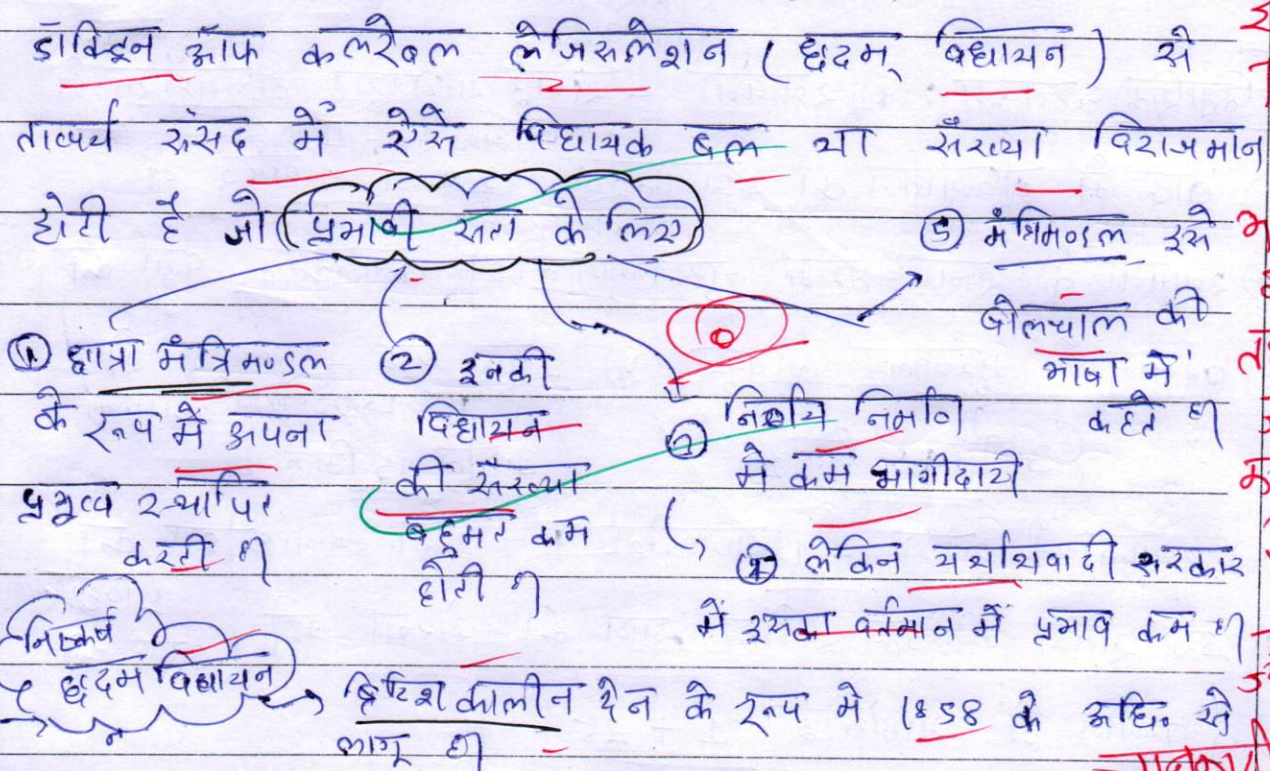 डॉक्ट्रिन ऑफ कलरेबल लेजिसलेशन (छदम् विधायन) से
तात्पर्य संसद में ऐसे विधायक दल या संख्या विराजमान
होती है जो प्रभावी सत्ता के लिए
① छाया मंत्रिमण्डल
के रूप में अपना
प्रभुत्व स्थापित
करती है।
② इनकी
विधायन
की संख्या
बहुमत कम
होती है।
③ निर्णय निर्माण
मे कम भागीदारी
④ लेकिन यथार्थवादी सरकार
में इसका वर्तमान में प्रभाव कम है।
⑤ मंत्रिमण्डल इसे
बोलचाल की
भाषा में
कहते है।
0
निष्कर्ष
छदम विधायन
ब्रिटिश कालीन देन के रूप मे 1858 के अधि० से
लागू है।